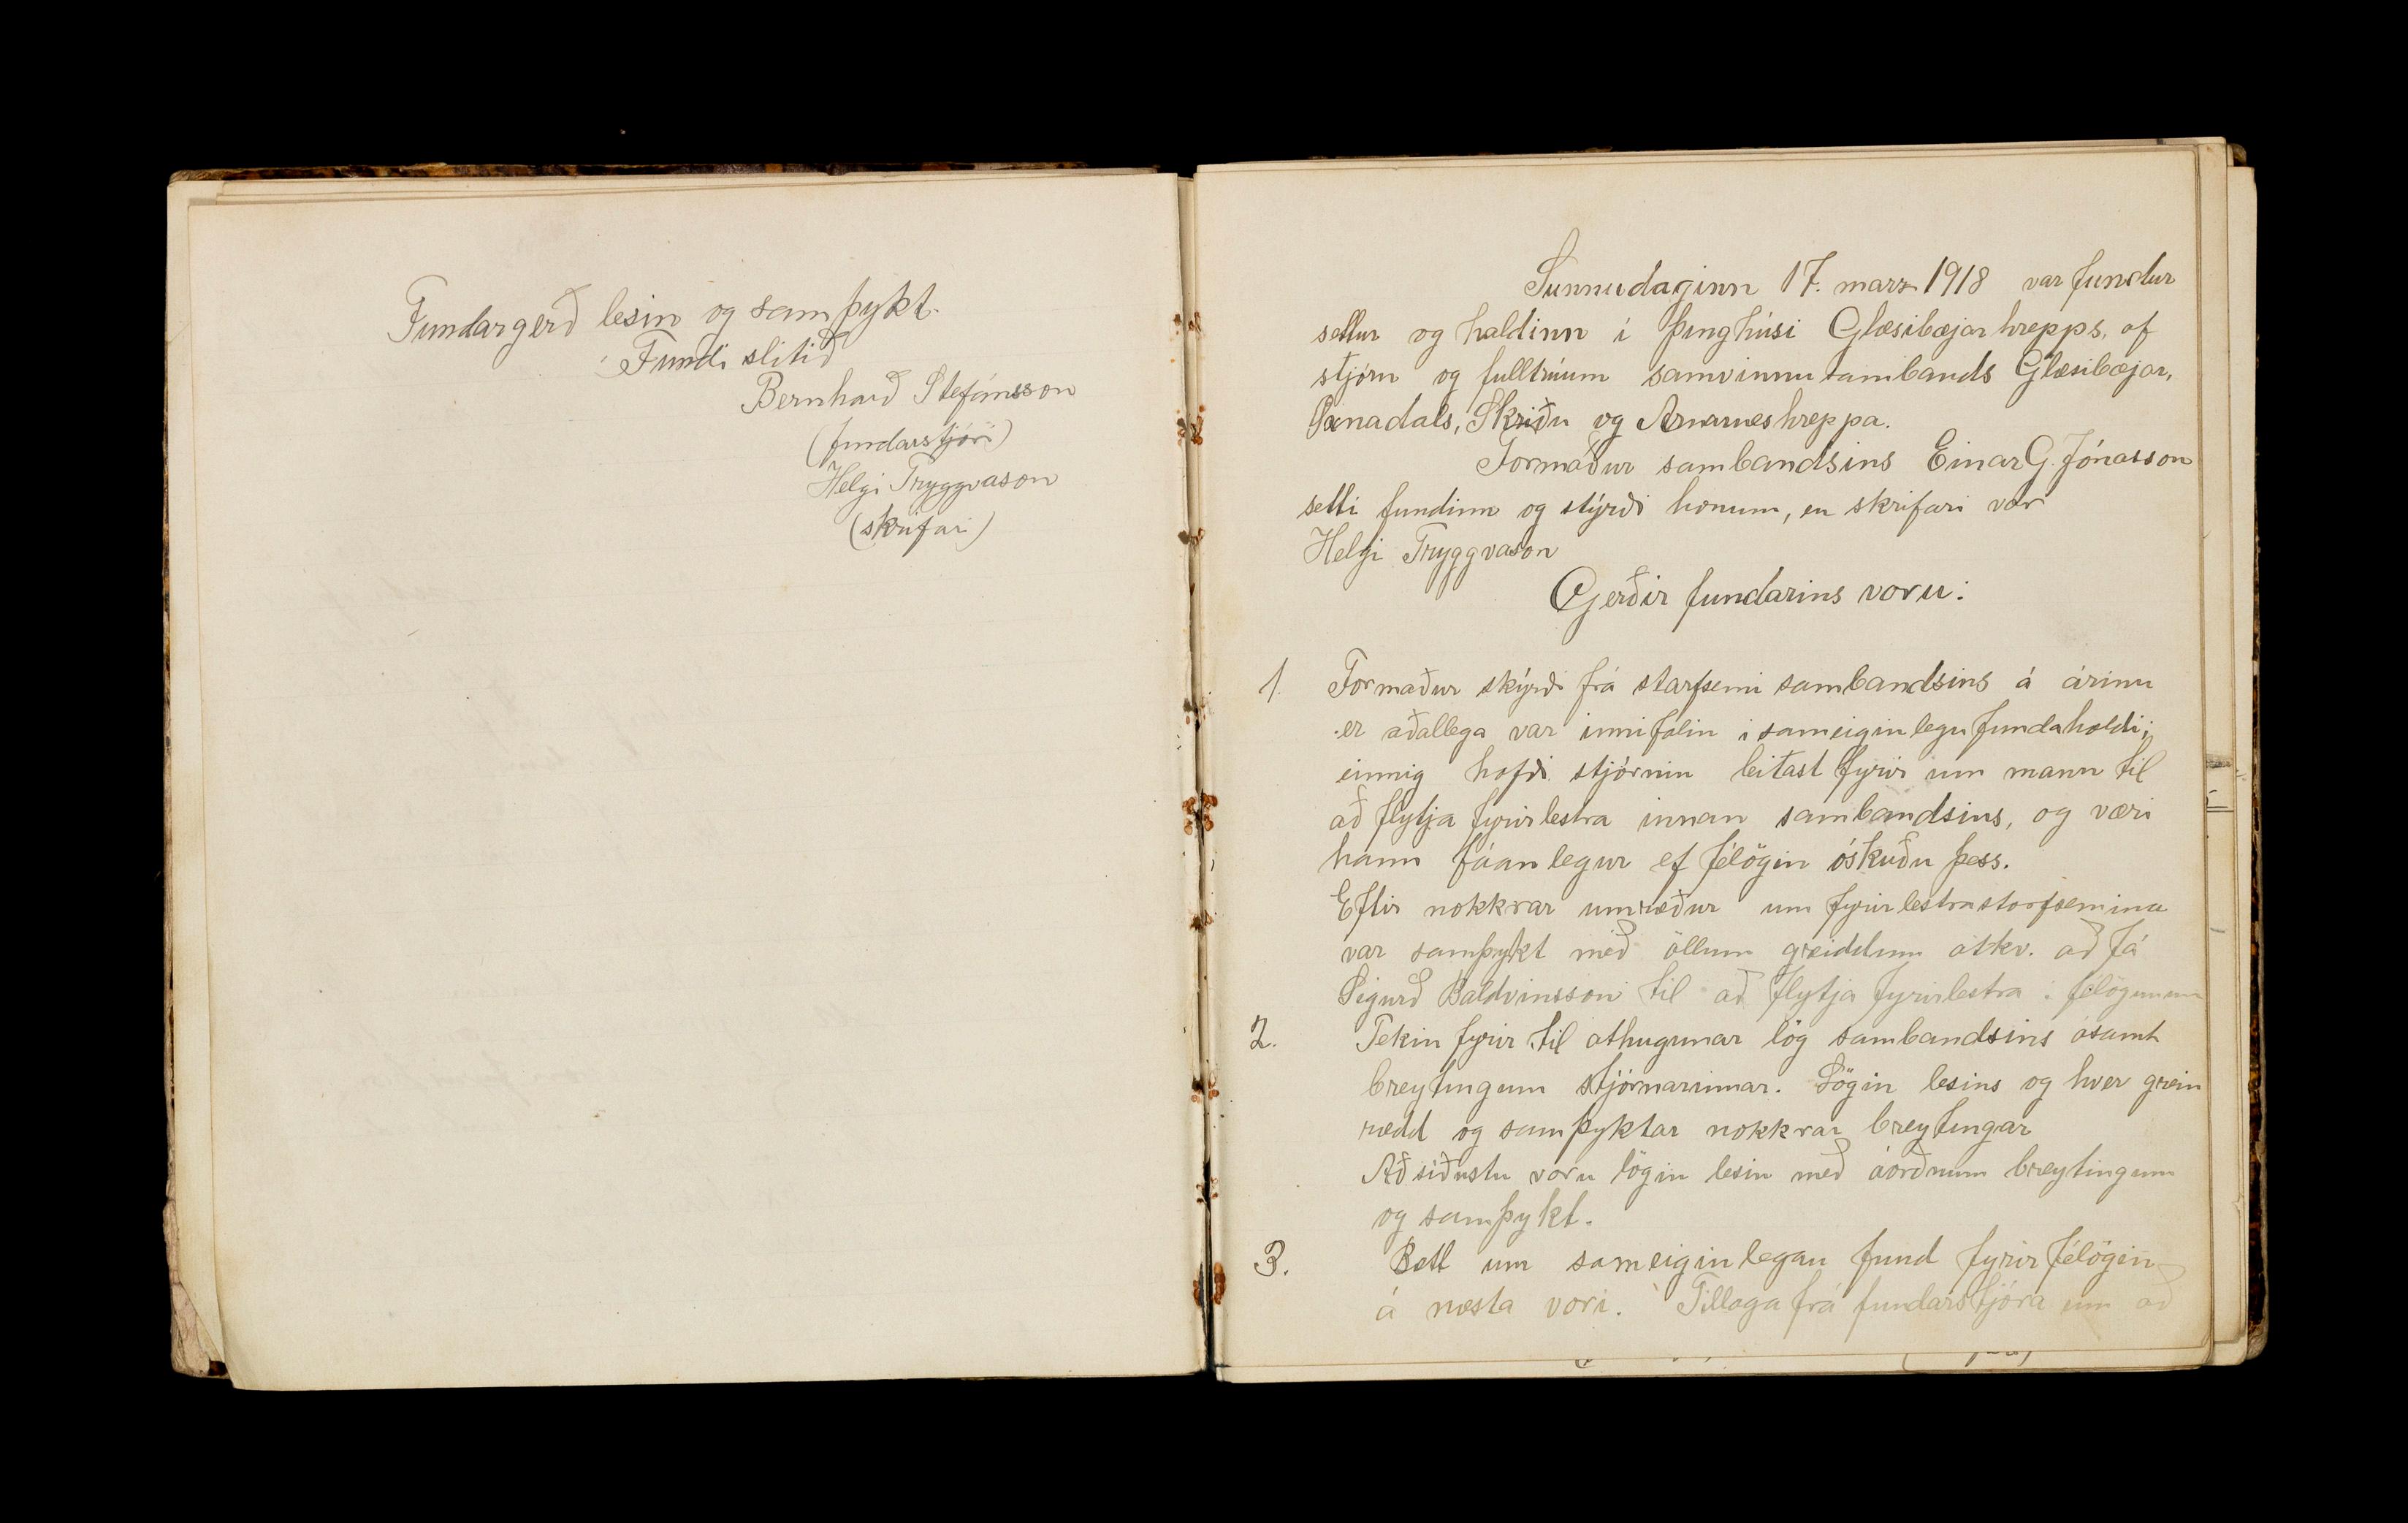 Fundargerð lesin og samþykt.
Fundi slitið
Bernharð Stefánsson
(fundarstjóri)
Helgi Tryggvason
(skrifari)
Sunnudaginn 17. marz 1918 var fundur
settur og haldinn í þinghúsi Glæsibæjarhrepps, af
stjórn og fulltrúum samvinnusambands Glæsibæjar,
Öxnadals, Skriðu og Arnarneshreppa.
Formaður sambandsins Einar G. Jónasson
setti fundinn og stýrði honum, en skrifari var
Helgi Tryggvason
Gerðir fundarins voru:
1. Formaður skýrði frá starfsemi sambandsins á árinu
er aðallega var innifalin i sameiginlegu fundahaldi;
einnig hafði stjórnin leitast fyrir um mann til
að flytja fyrirlestra innan sambandsins, og væri
hann fáanlegur ef félögin óskuðu þess.
Eftir nokkrar umræður um fyrirlestrastarfsemina
var samþykt með öllum greiddum atkv. að fá
Sigurð Baldvinsson til að flytja fyrirlestra i félögunum
2. Tekin fyrir til athugunar lög sambandsins ásamt
breytingum stjórnarinnar. Lögin lesins og hver grein
rædd og samþyktar nokkrar breytingar
Að síðustu voru lögin lesin með áorðnum breytingum
og samþykt.
3. Rætt um sameiginlegan fund fyrir félögin
á næsta vori. Tillaga frá fundarstjóra um að